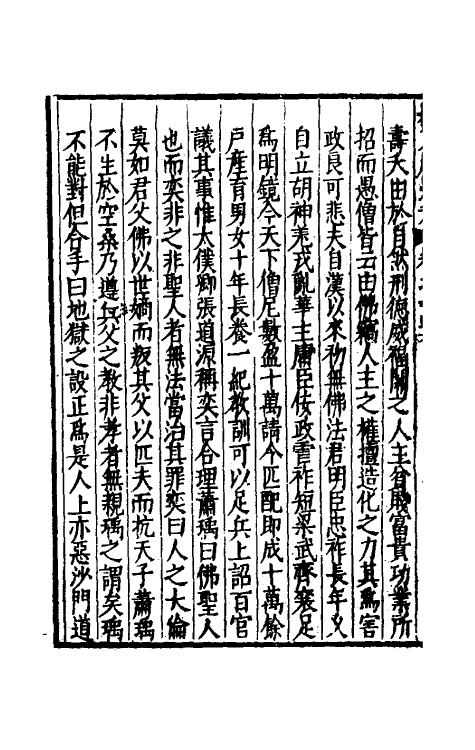 壽夭由於自然刑德威福關之人主貧賤富貴功業所
招而愚僧皆云由佛竊人主之權擅造化之力其為害
政良可悲夫自漢以來初無佛法君明臣忠祚長年乆
自立胡神羌戎亂華主庸臣佞政虐祚短梁武齊襄足
為明鏡今天下僧尼數盈十萬請令匹配即成十萬餘
户産育男女十年長養一紀教訓可以足兵上詔百官
議其事惟太僕卿張道源稱奕言合理蕭瑀曰佛聖人
也而奕非之非聖人者無法當治其罪奕曰人之大倫
莫如君父佛以世嫡而叛其父以匹夫而抗天子蕭瑀
不生於空桑乃遵無父之教非孝者無親瑀之謂矣瑀
不能對但合手曰地獄之設正為是人上亦惡沙門道